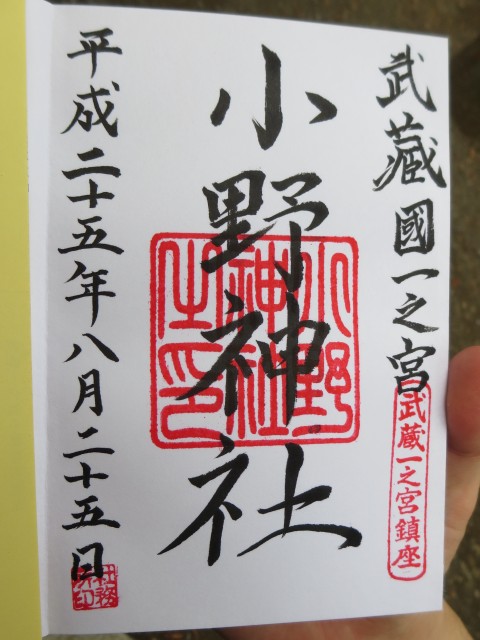 武蔵國一之宮
武蔵一之宮鎮座
小野神社
小野神社之印
平成二十五年八月二十五日
社務所印